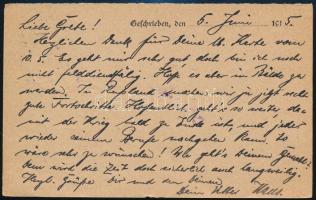 Geschrieben, den 5. Juni 1915.
Liebe Grete!
Herzlichen Dank für Deine lb. Karte vom
10. 5. Es geht mir sehr gut, doch bin ich noch
nicht felddienstfähig. Hoffe es aber in Bälde zu
werden. In machen wir ja jetzt sehr
gute Fortschritte. Hoffentlich geht's so weiter, da-
mit der Krieg bald zu Ende ist, und jeder
wieder seinem Berufe nachgehen kann. Es
wäre sehr zu wünschen! Wie geht's Deinem
Dem wird die Zeit doch sicherlich auch langweilig.
Herzl. Grüße Dir und den Deinen
Dein Vetter